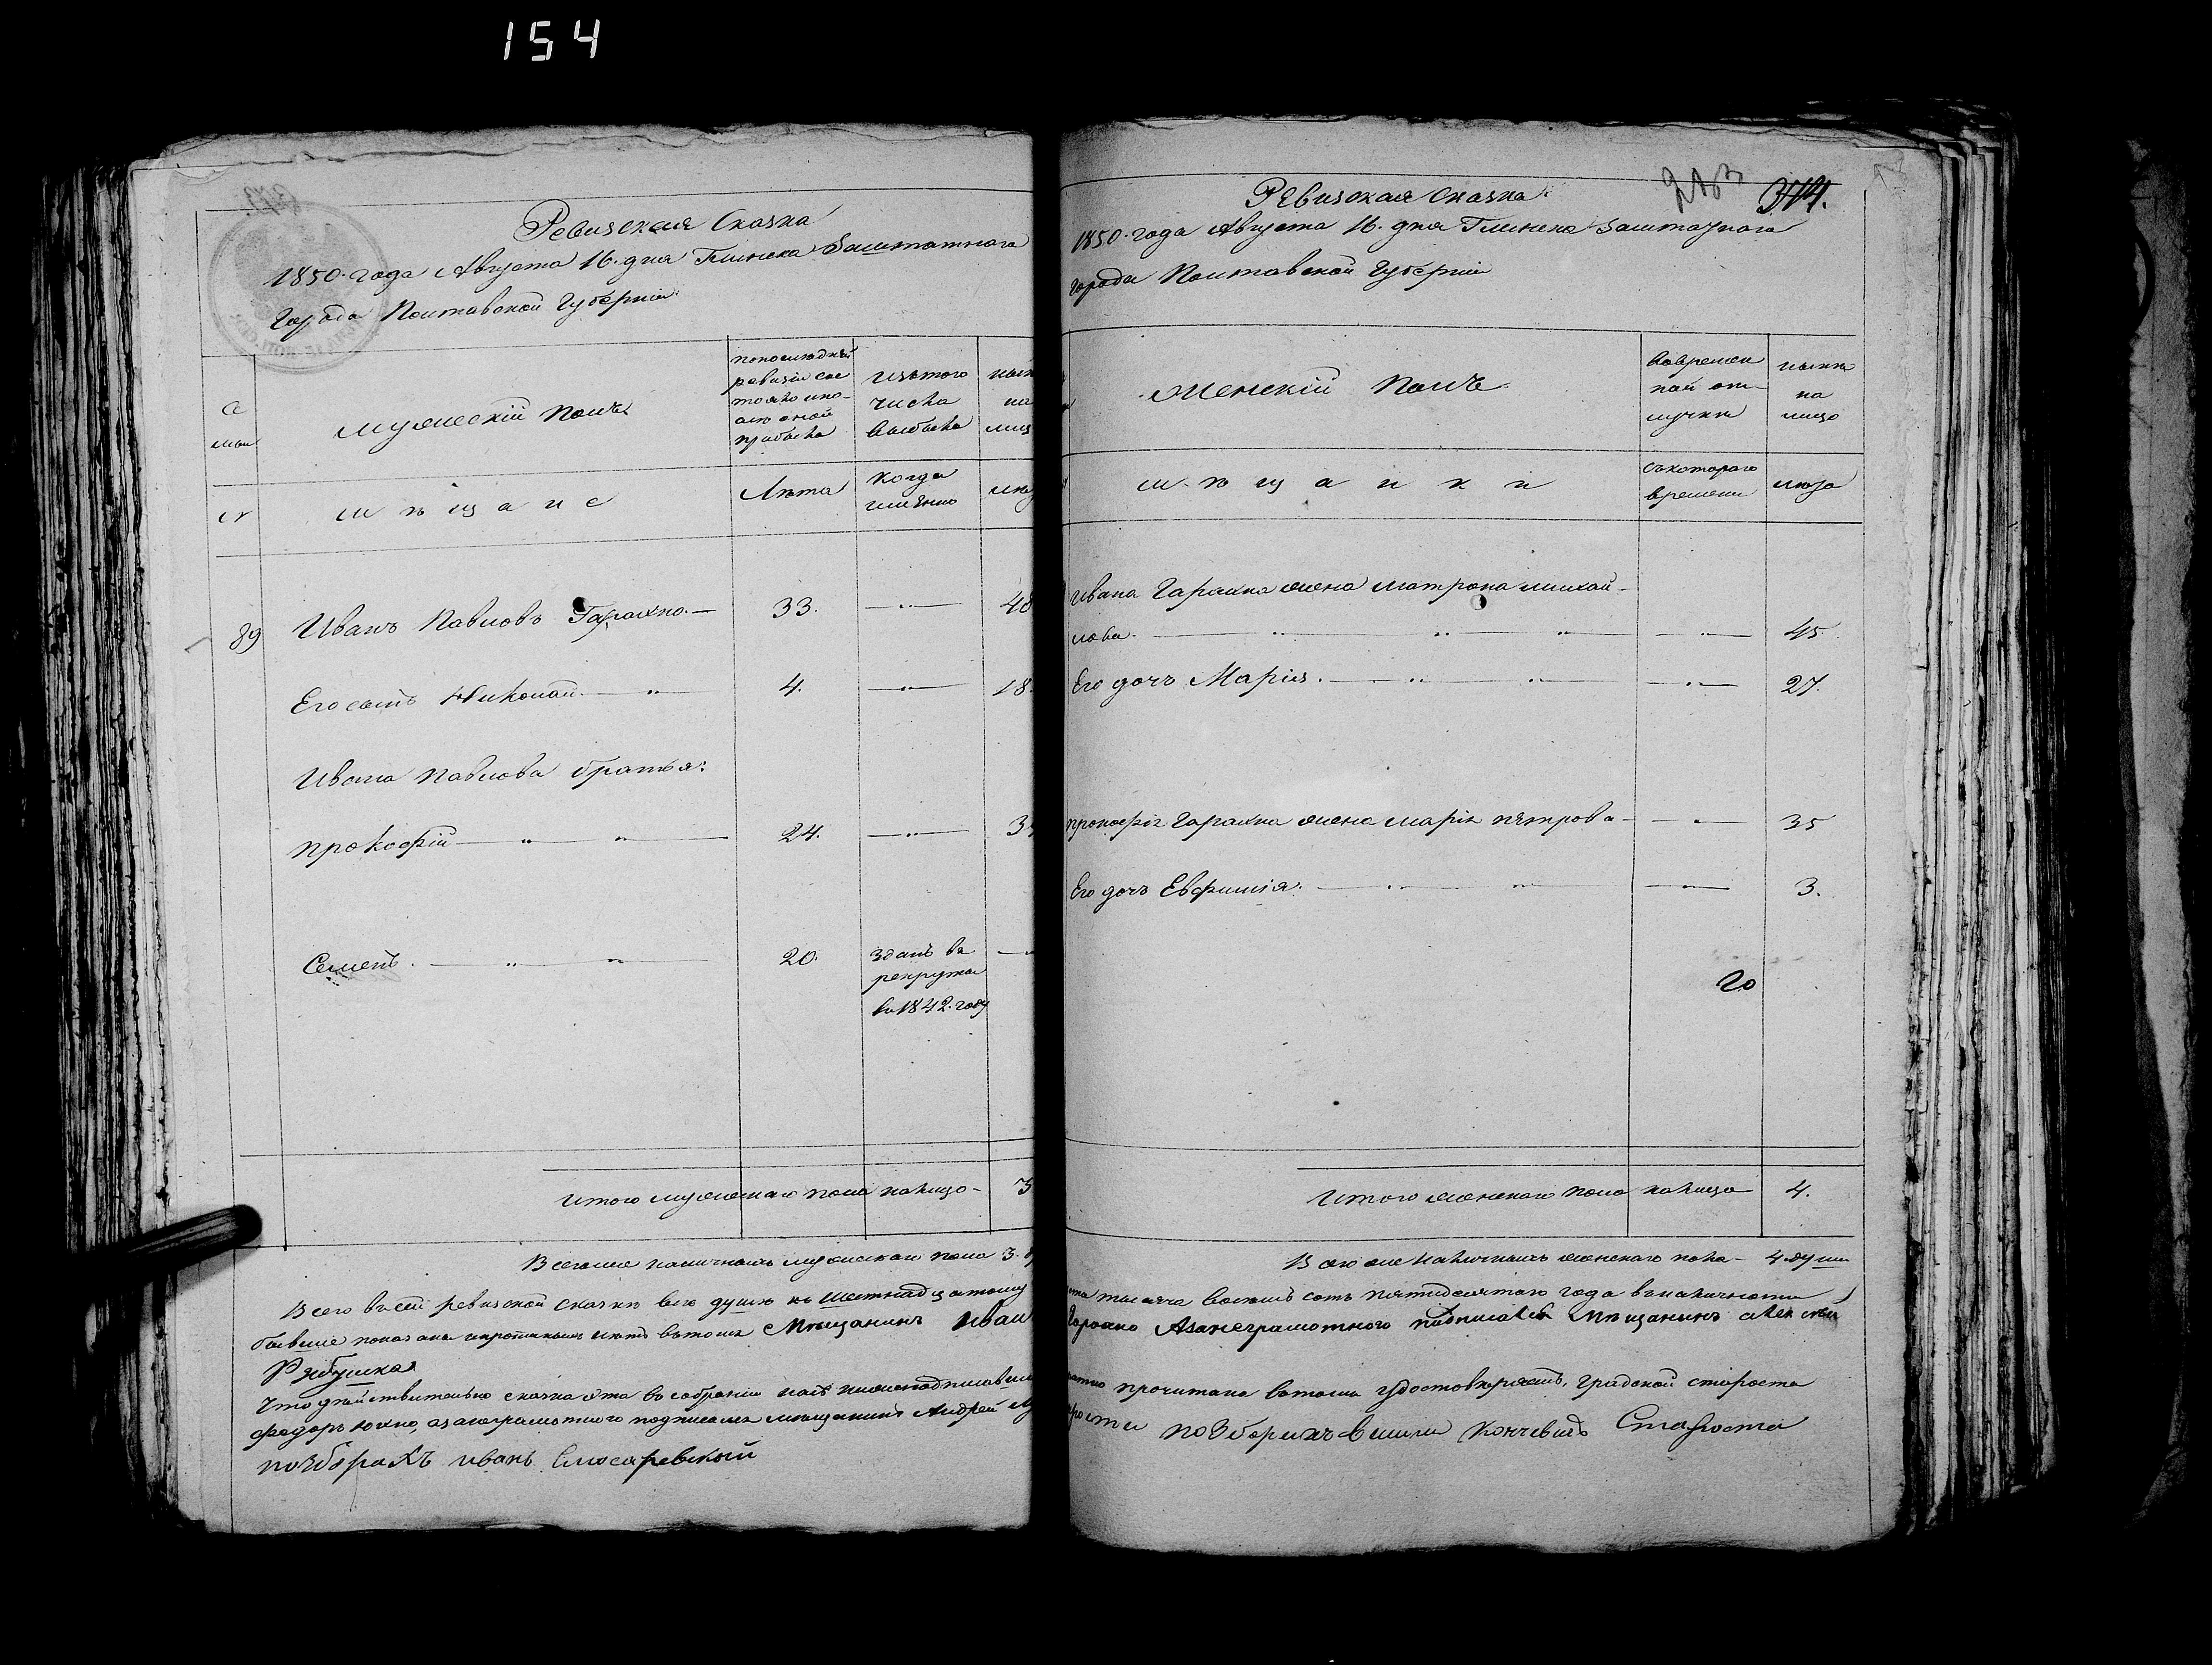 154
Ревизская Сказка
1850 года Августа 16 дня Глинска Заштатнаго
Города Полтавской Губерніи
Се
мьи
Мужескій полъ
по последней
ревизіи сос
тояло и по
сле оной
прибыло
изъ того
числа
выбыло
ныне
на
лиц
№
мѣщане
Лѣта
когда
именно
лѣ
89 Иванъ Павловъ Гарахно — 33. — 48
Его сынъ Николай — 4. — 18.
Ивана Павлова братья:
Прокофій — 24. — 3
Семенъ — 20. зданъ въ
рекруты
въ 1842 году
Итого мужескаго пола налицо — 3
Всего же наличныхъ мужескаго пола 3.
Всего въ сей ревизской сказке всю душю къ шестнадцатому
Мѣщанинъ Иван
Рябушка
Что действительно сказка эта въ собраніи
Федоръ Юхно, а за неграмотного подписался мещанинъ Андрей
по Зборахъ иванъ Слюсаревский
Ревизская Сказка
213 314.
1850 года Августа 16 дня Глинска Заштатнаго
города Полтавской Губерніи
Женскій полъ
во времен
ной от
лучки
ныне
на
лицо
мѣщанки
съ котораго
времени
лѣта
Ивана Гарахна жена Матрона Михай-
лова. — 45.
Его дочь Марія. — 27.
Прокофія Гарахна жена Марія Петрова — 35
Его дочь Евфимія. — 3.
20
Итого женскаго пола налицо 4.
Всего же наличныхъ женскаго пола — 4 души
тысяча восемь сотъ пятидесятаго года въ наличности
Гарахно А за неграмотного подписался Мещанинъ Алексѣй
прочитана въ томъ удостоверяемъ. градской староста
по Зборихъ Староста